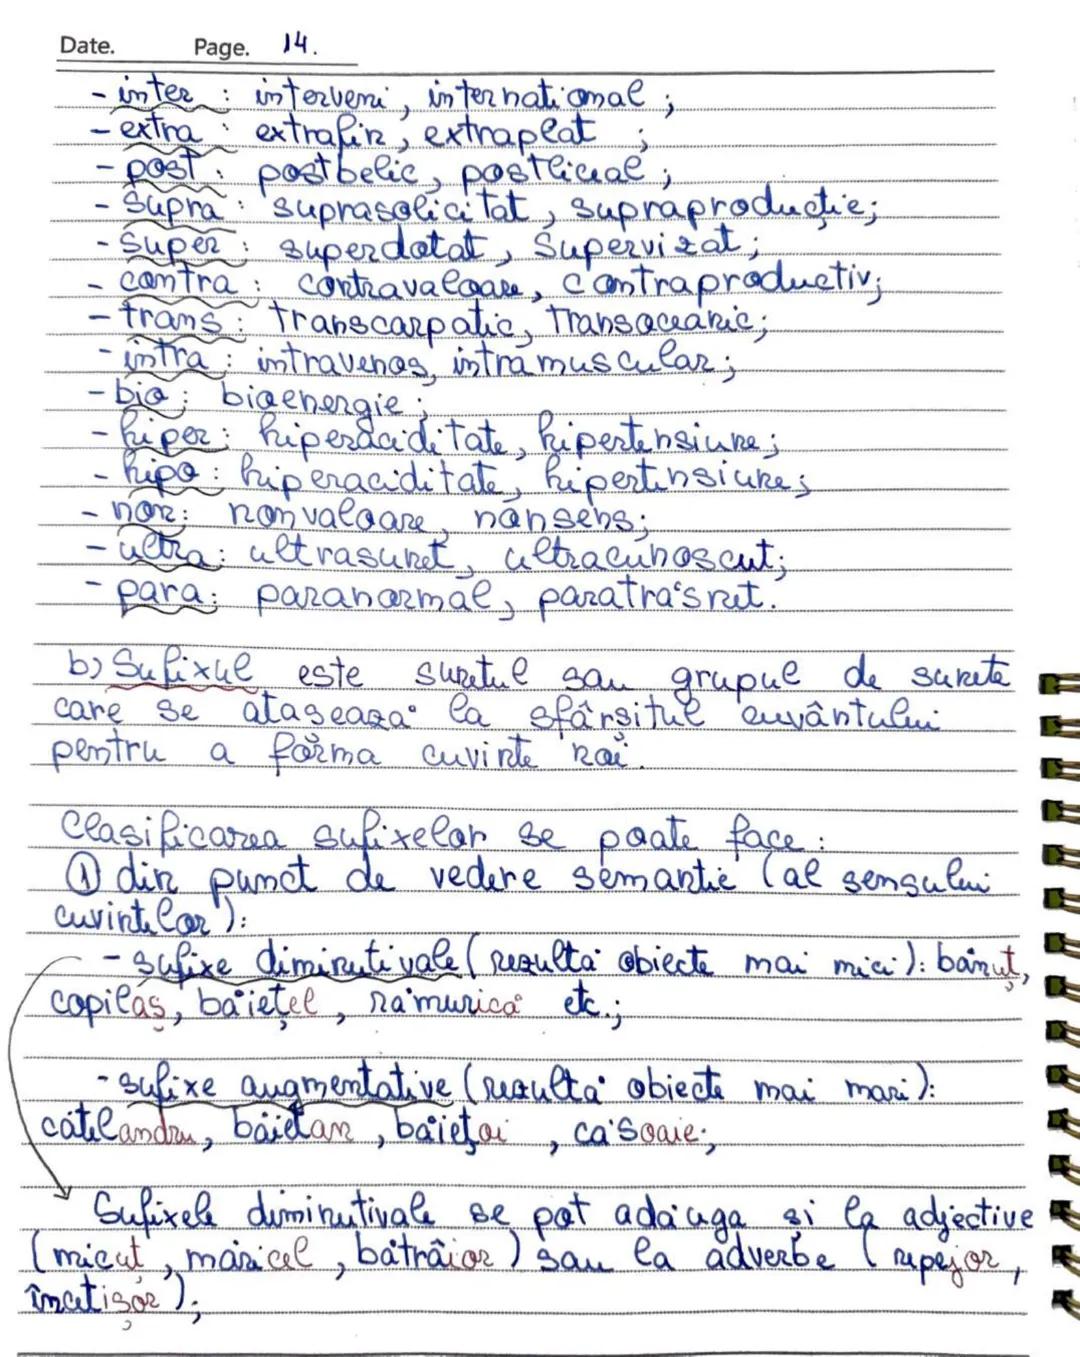 Date. Page. 14.
- inter : interveni, internațional ;
- extra : extrafin, extraplat ;
- post : postbelic, postliceal ;
- supra : suprasolicitat, supraproducție;
- super : superdotat, supervizat ;
- contra : contravaloare, contraproductiv;
- trans : transcarpatic, transoceanic;
- intra : intravenos, intramuscular ;
- bio : bioenergie ;
- hiper : hiperaciditate, hipertensiune ;
- hipo : hiperaciditate, hipertensiune ;
- non : nonvaloare, nonsens ;
- ultra : ultrasunet, ultracunoscut;
- para : paranormal, paratrăsnet.
b) Sufixul este sunetul sau grupul de sunete
care se atașează la sfârșitul cuvântului
pentru a forma cuvinte noi.
Clasificarea sufixelor se poate face :
① din punct de vedere semantic (al sensului
cuvintelor):
- sufixe diminutivale (rezultă obiecte mai mici): bănuț,
copilaș, băiețel, rămurică etc.;
- sufixe augmentative (rezultă obiecte mai mari):
cățelandru, băietan, băiețoi, căsoaie;
Sufixele diminutivale se pot adăuga și la adjective
(micuț, măricel, bătrâior) sau la adverbe (repejor,
încetișor);